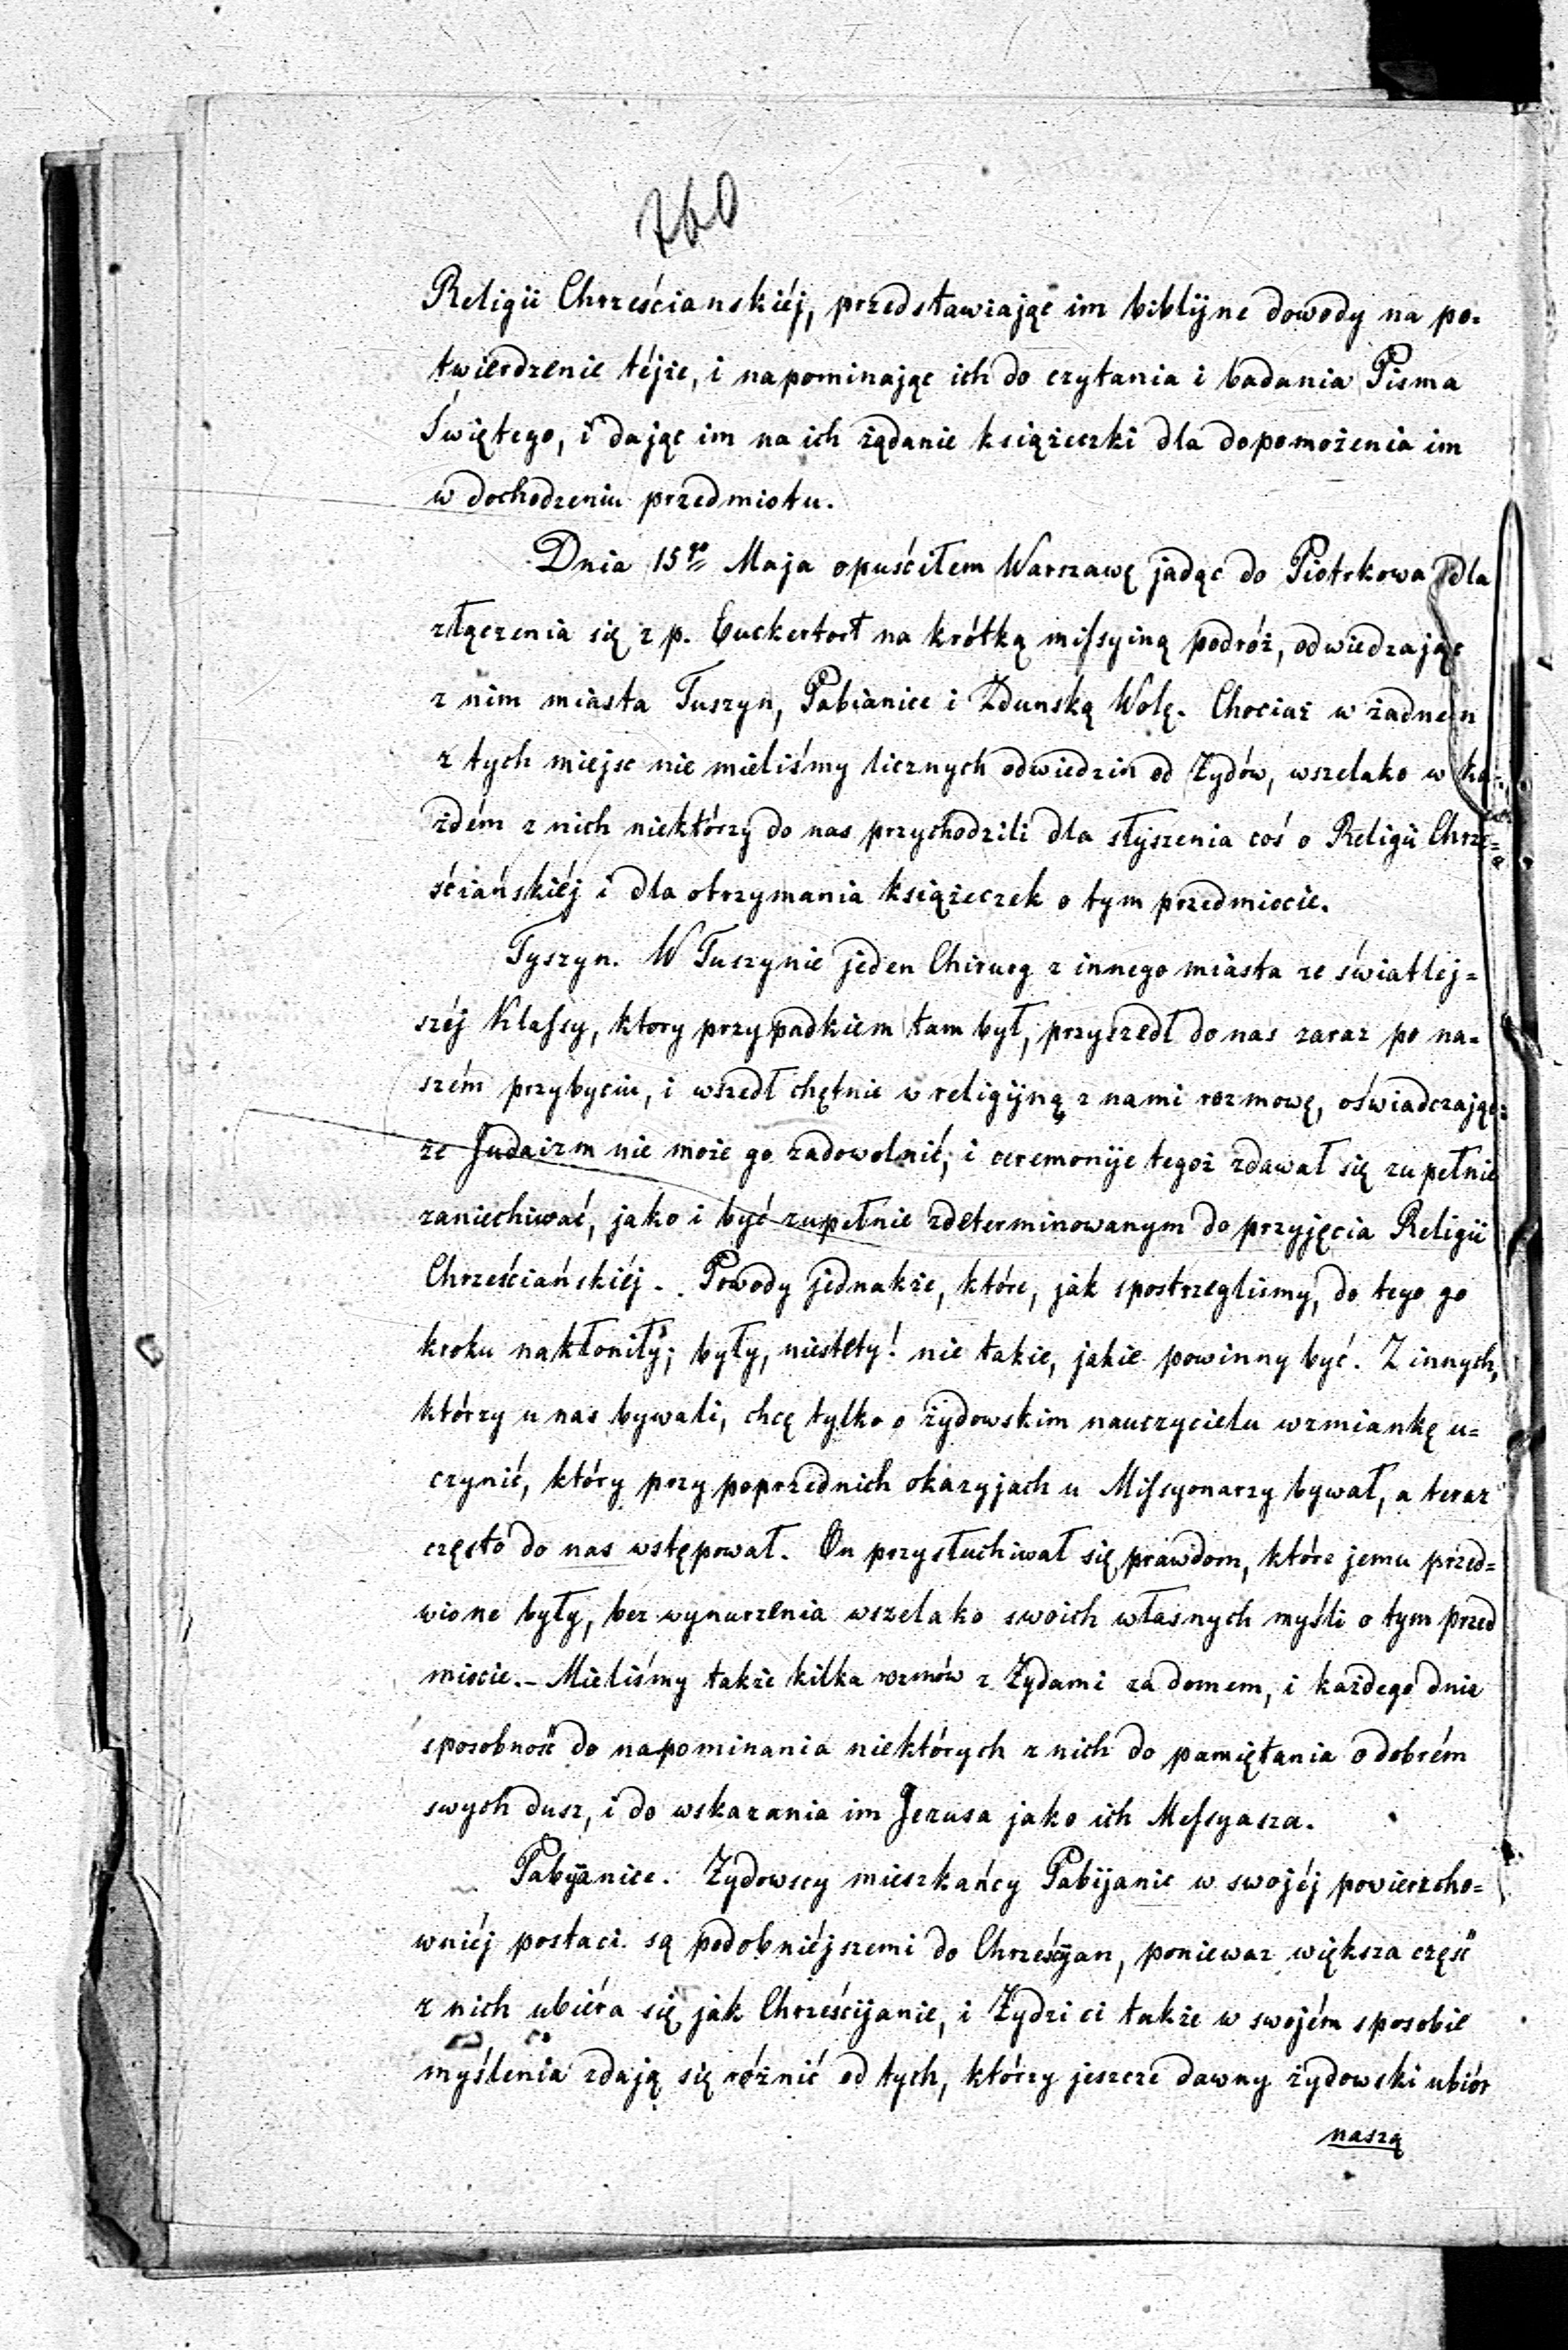 760
Religii Chrześcianskiéj, przedstawiając im biblijne dowody na po-
twierdzenie téjże, i napominając ich do czytania i badania Pisma
Świętego, i dając im na ich żądanie książeczki dla dopomożenia im
w dochodzeniu przedmiotu.
Dnia 15go Maja opuściłem Warszawę jadąc do Piotrkowa dla
złączenia się z p. Zuckertort na krótką missyiną podróż, odwiedzając
z nim miasta Tuszyn, Pabianice i Zdunską Wolę. Chociaż w żadnem
z tych miejsc nie mieliśmy licznych odwiedzin od Żydów, wszelako w ka-
żdém z nich niektórzy do nas przychodzili dla słyszenia coś o Religii Chrze-
ściańskiéj i dla otrzymania książeczek o tym przedmiocie.
Tyszyn. W Tuszynie jeden Chirurg z innego miasta ze światlej=
széj Klassy, ktory przypadkiem tam był, przyszedł do nas zaraz po na-
szém przybyciu, i wszedł chętnie w religijną z nami rozmowę, oświadczając:
że Judaizm nie może go zadowolnić; i ceremonije tegoż zdawał się zupełnie
zaniechiwać, jako i być zupełnie zdeterminowanym do przyjęcia Religii
Chrześciańskiéj. Powody jednakże, które, jak spostrzegliśmy, do tego go
kroku nakłoniły; były, niestety! nie takie, jakie powinny być. Z innych,
którzy u nas bywali, chcę tylko o żydowskim nauczycielu wzmiankę u=
czynić, który przy poprzednich okazyjach u Missyonarzy bywał, a teraz
często do nas wstępował. On przysłuchiwał się prawdom, które jemu przed=
wione były, bez wynurzenia wszelako swoich własnych myśli o tym przed
miocie.- Mieliśmy także kilka rozmów z Żydami za domem, i każdego dnia
sposobność do napominania niektórych z nich do pamiętania o dobrém
swych dusz, i do wskazania im Jezusa jako ich Messyasza.
Pabijanice. Żydowscy mieszkańcy Pabijanic w swojéj powierzcho=
wniéj postaci są podobniéjszemi do Chrześcijan, ponieważ większa część
z nich ubiéra się jak Chrześcijanie, i Żydzi ci także w swojém sposobie
myślenia zdają się różnić od tych, którzy jeszcze dawny żydowski ubiór
naszą